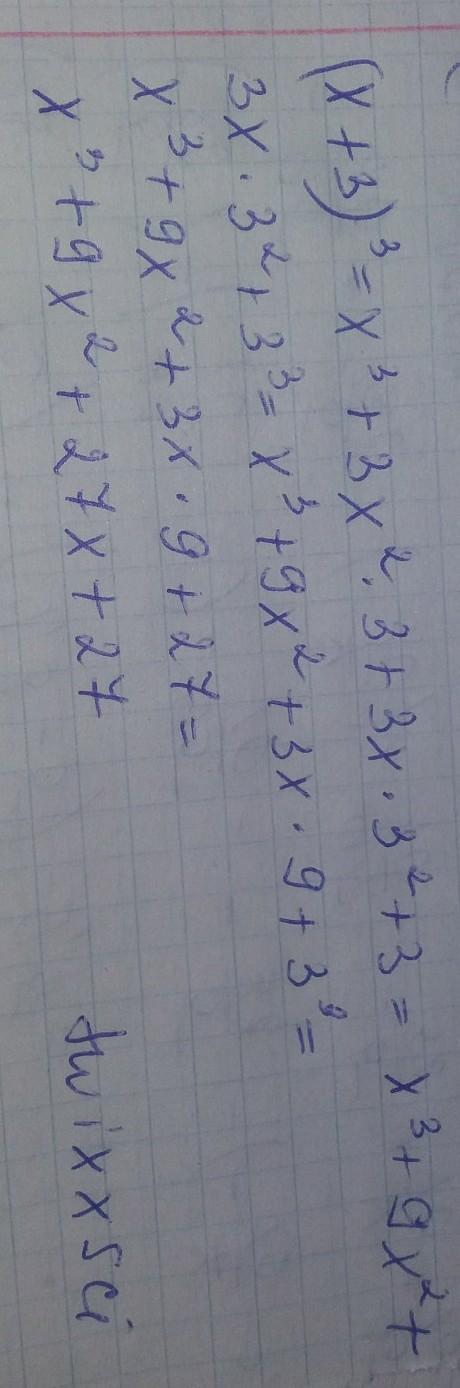 (x+3)³=x³+3x²·3+3x·3²+3= x³+9x²+
3x·3²+3³= x³+9x²+3x·9+3⁹=
x³+9x²+3x·9+27=
x³+9x²+27x+27